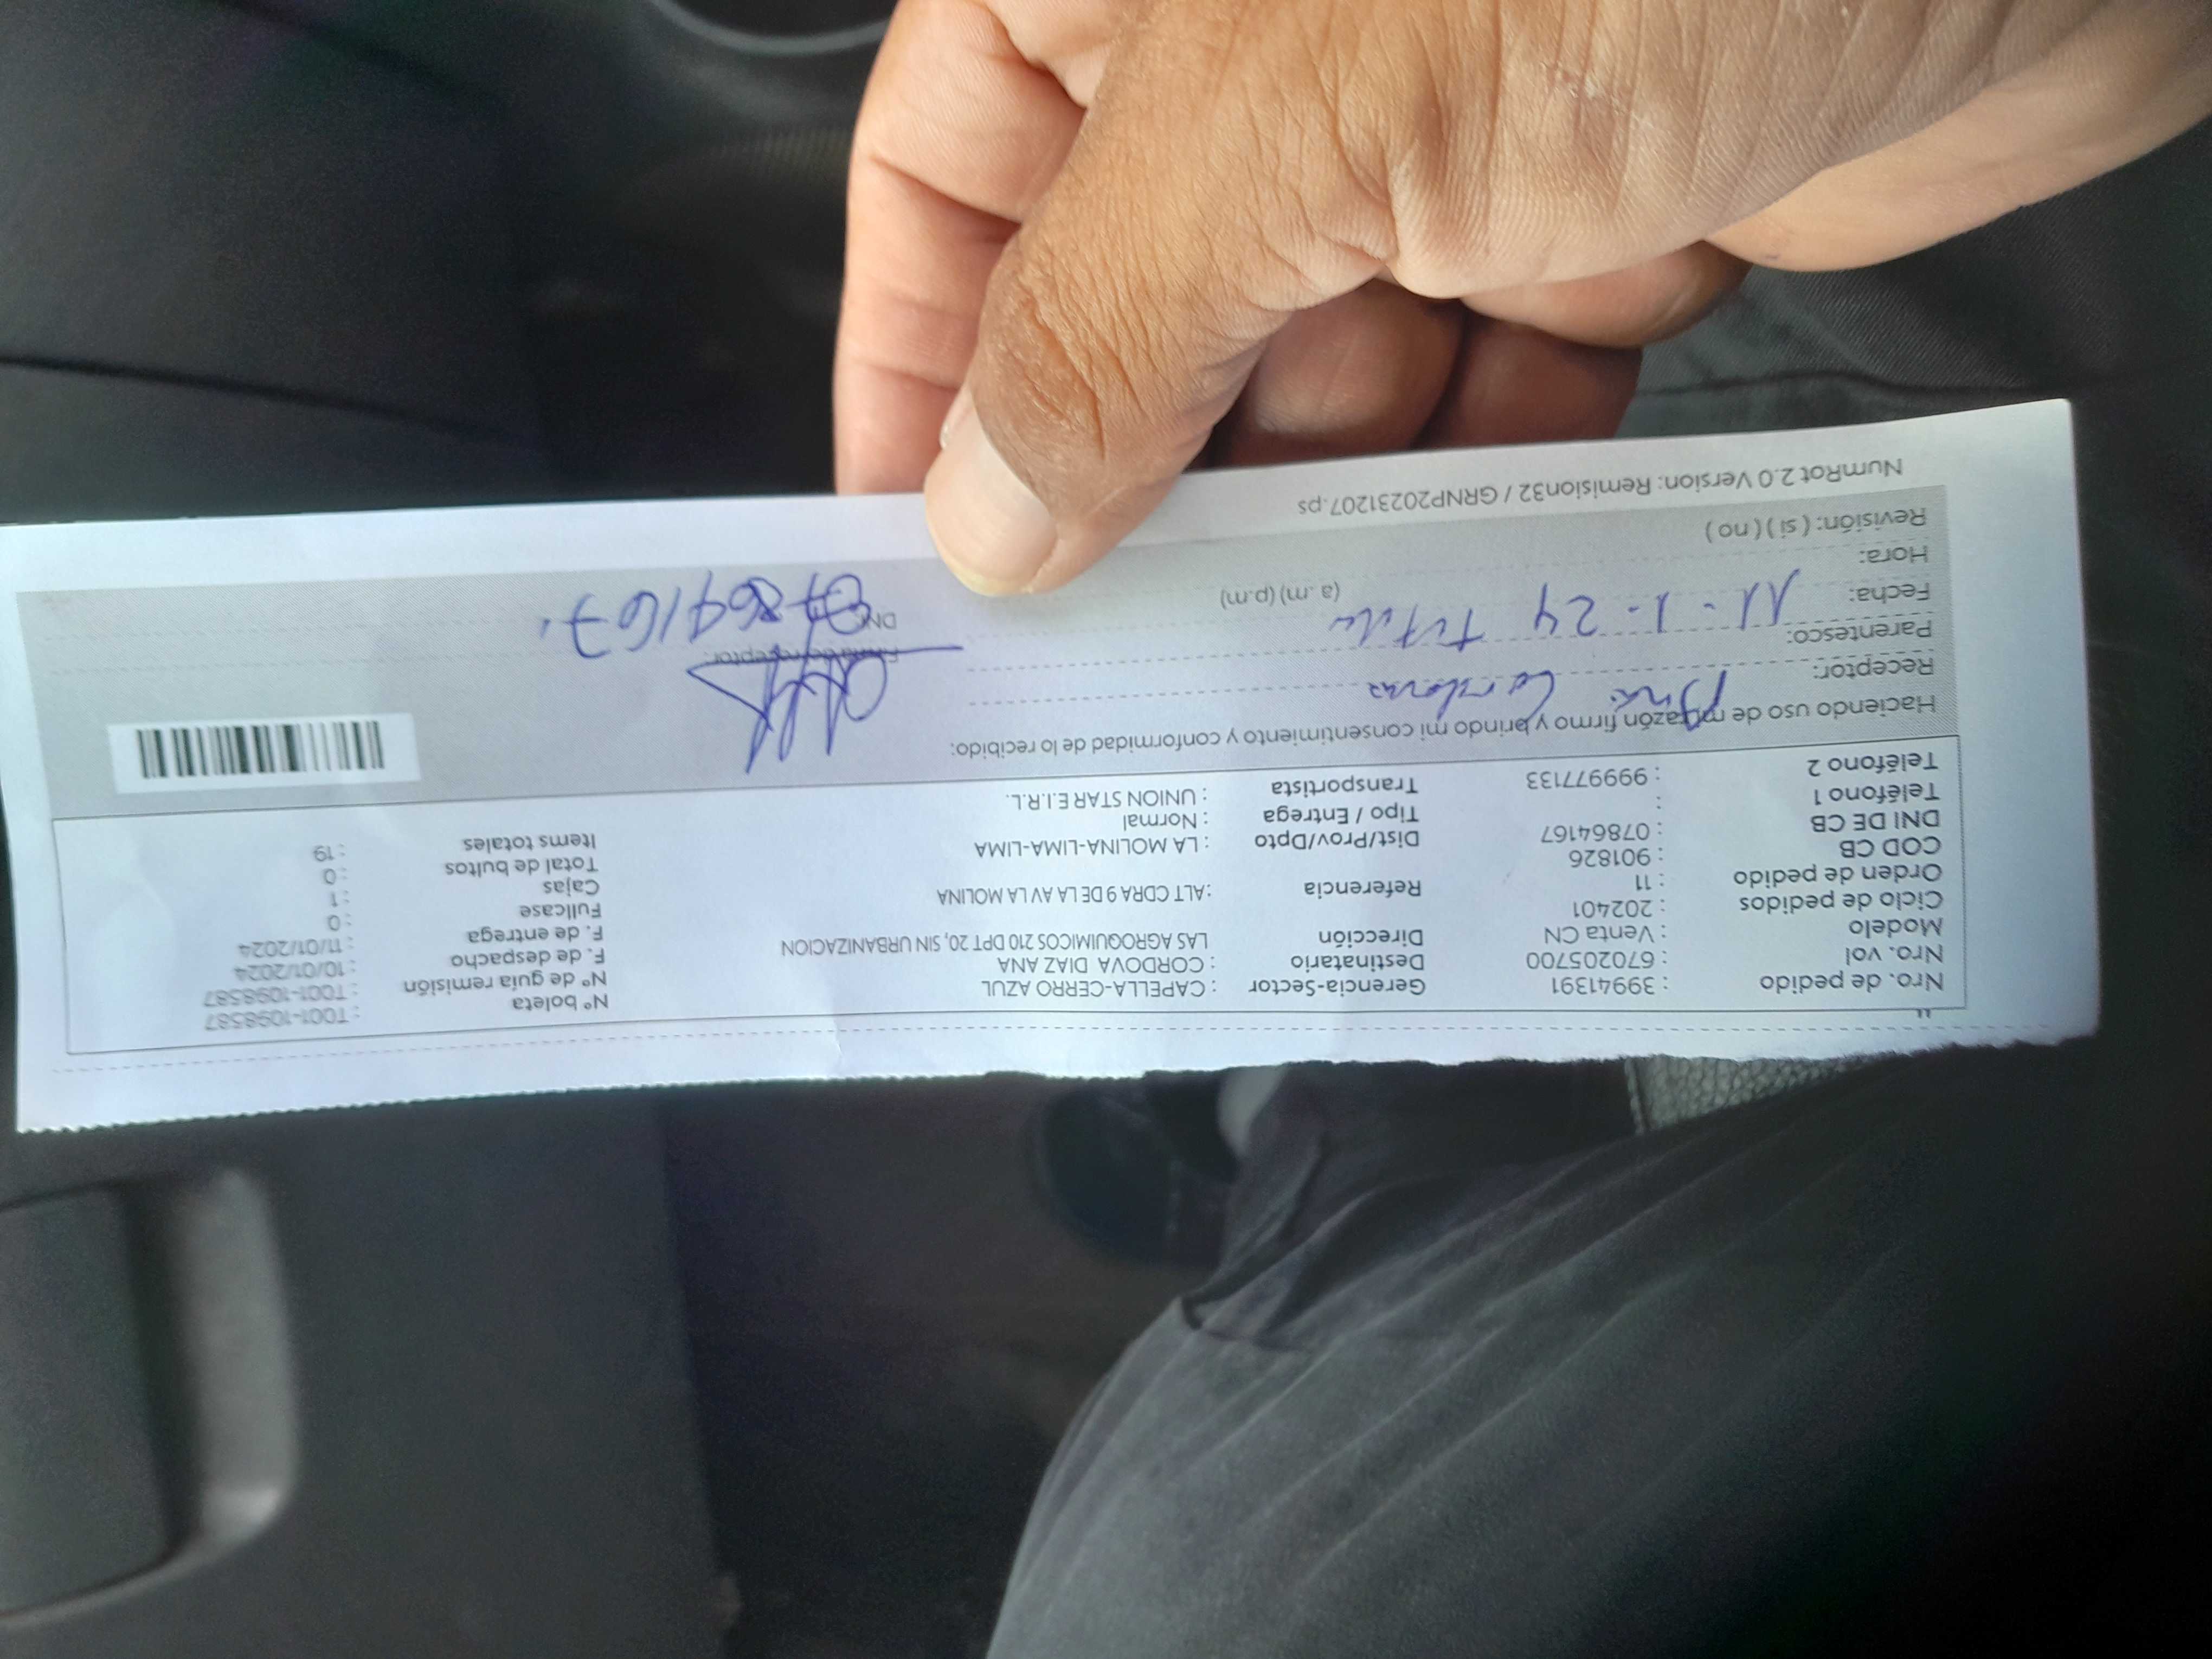 Nro. de pedido : 39941391
Nro. vol : 670205700
Modelo : Venta CN
Ciclo de pedidos : 202401
Orden de pedido : 11
COD CB : 901826
DNI DE CB : 07864167
Teléfono 1 :
Teléfono 2 : 999977133
Gerencia-Sector : CAPELLA-CERRO AZUL
Destinatario : CORDOVA DIAZ ANA
Dirección LAS AGROQUIMICOS 210 DPT 20, SIN URBANIZACION
Referencia : ALT CDRA 9 DE LA AV LA MOLINA
Dist/Prov/Dpto : LA MOLINA-LIMA-LIMA
Tipo / Entrega : Normal
Transportista : UNION STAR E.I.R.L.
N° boleta : T001-1098587
N° de guía remisión : T001-1098587
F. de despacho : 10/01/2024
F. de entrega : 11/01/2024
Fullcase : 0
Cajas : 1
Total de bultos : 0
Items totales : 19
Haciendo uso de mi razón firmo y brindo mi consentimiento y conformidad de lo recibido:
Receptor: Ana Cordova
Parentesco: Titular
Fecha: 11-1-24
Hora: (a .m) (p.m)
Revisión: ( si ) ( no )
Firma de receptor:
DNI: 07864167.
NumRot 2.0 Version: Remision32 / GRNP20231207.ps